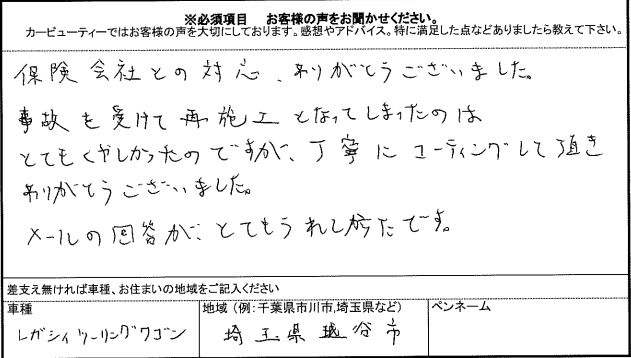 ※必須項目　お客様の声をお聞かせください。
カービューティーではお客様の声を大切にしております。感想やアドバイス。特に満足した点などありましたら教えて下さい。
保険会社との対応、ありがとうございました。
事故を受けて再施工となってしまったのは
とてもくやしかったのですが、丁寧にコーティングして頂き
ありがとうございました。
メールの回答が、とてもうれしかったです。
差支え無ければ車種、お住まいの地域をご記入ください
車種　地域（例：千葉県市川市,埼玉県など）　ペンネーム
レガシィツーリングワゴン　埼玉県越谷市